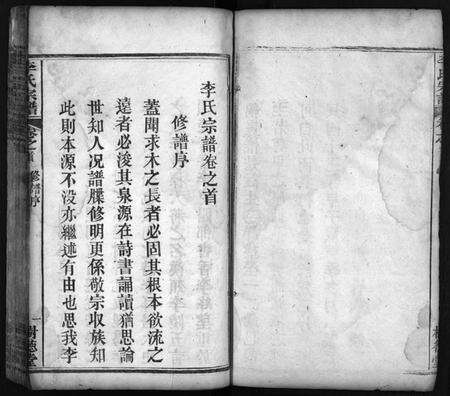 李氏宗譜卷之首
修譜序
蓋聞求木之長者必固其根本欲流之
遠者必浚其泉源在詩書誦讀猶思論
世知人况譜牒修明更係敬宗取族知
此則本源不没亦繼述有由也思我李
李氏宗譜
卷之首
修譜序
一
樹德堂